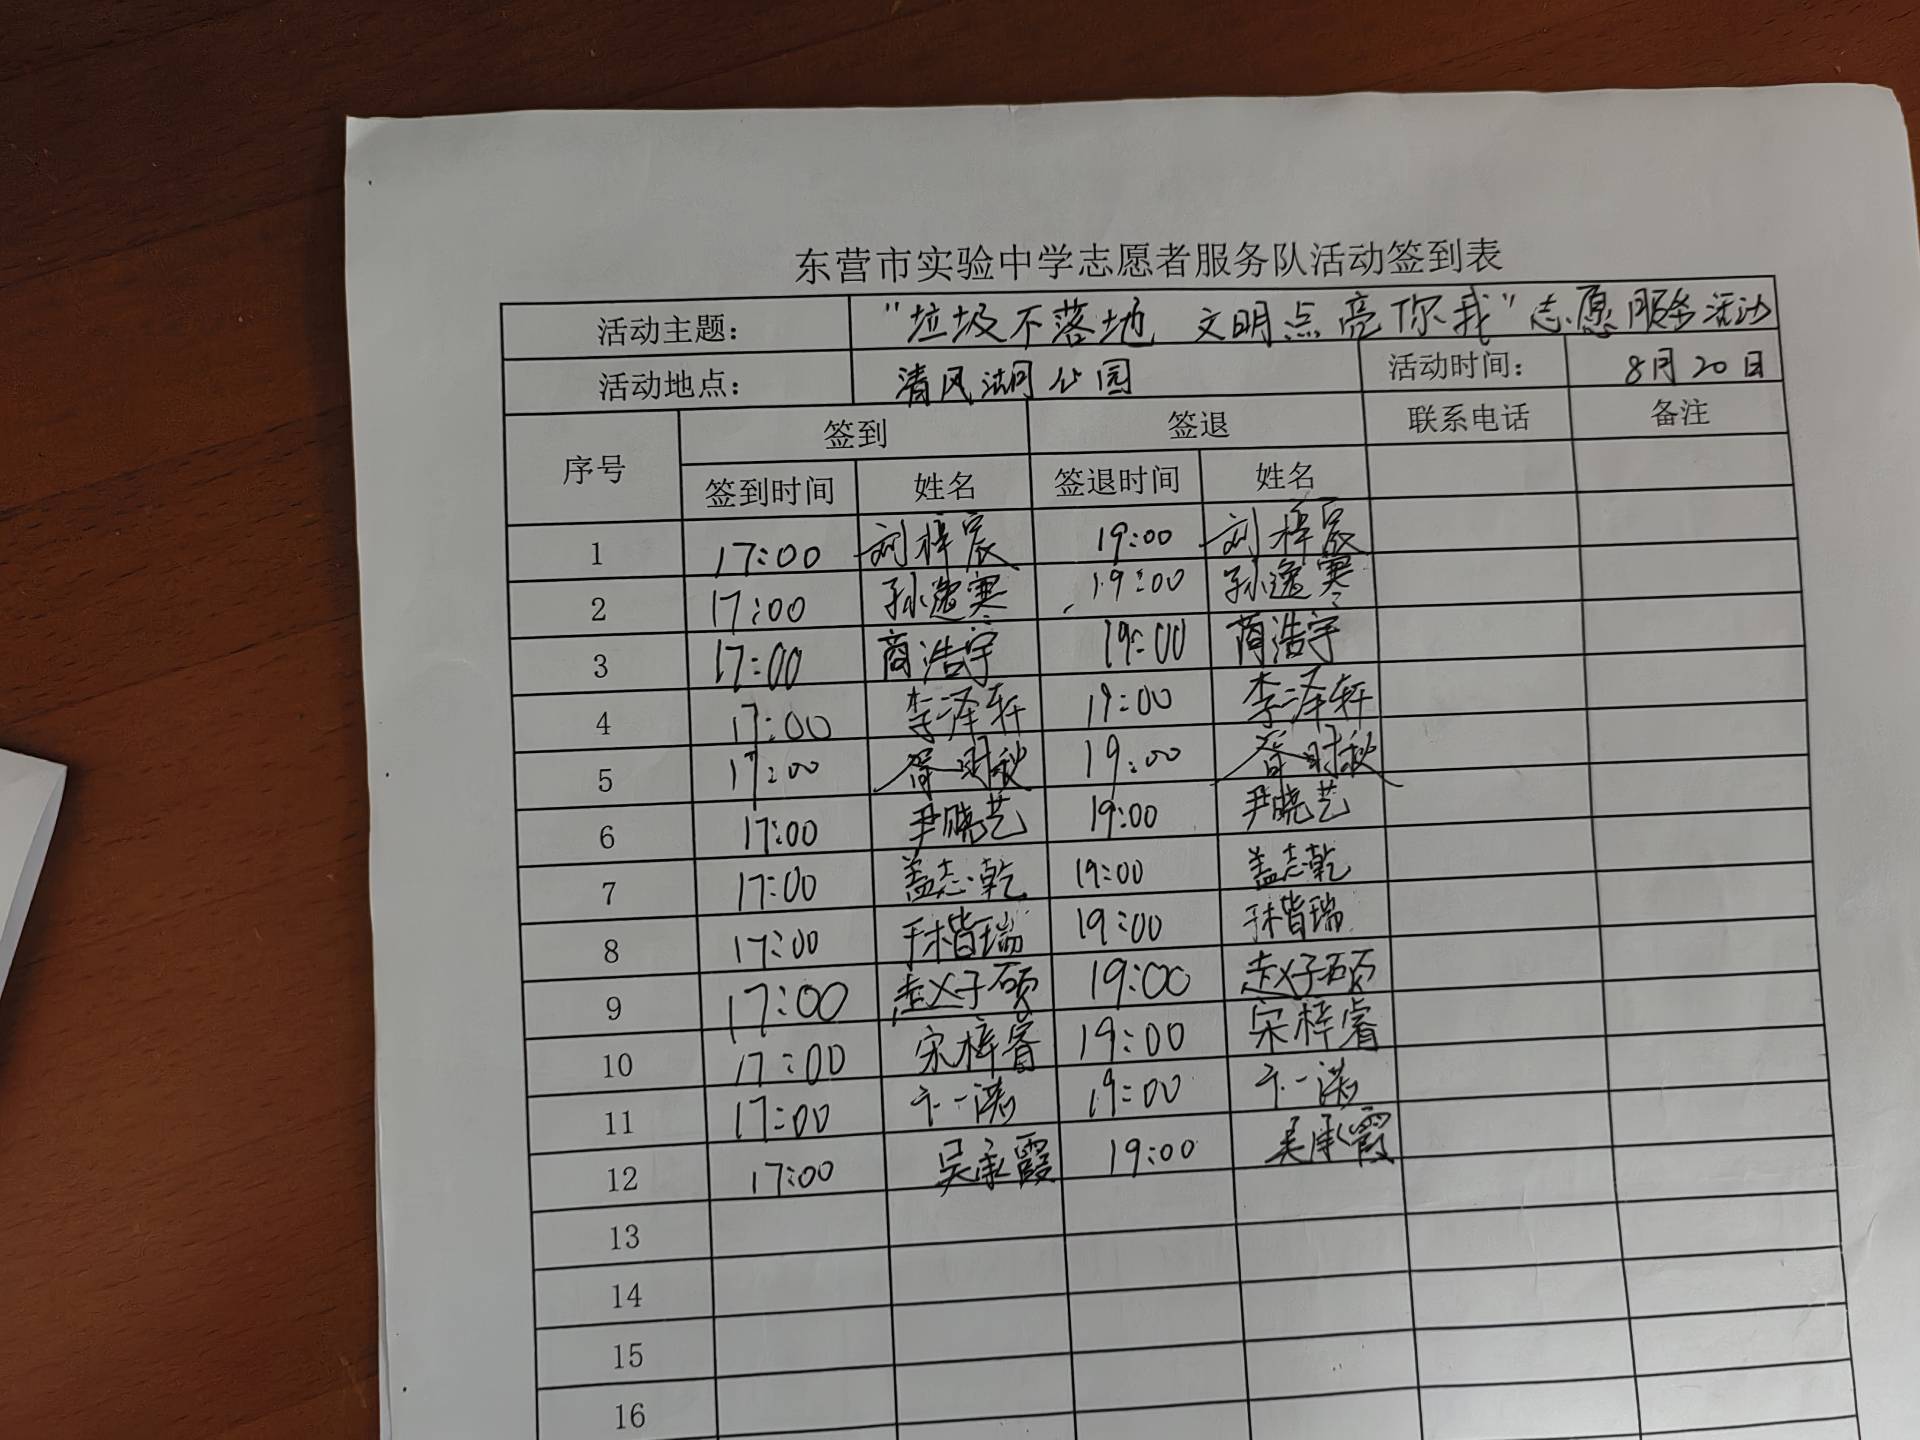 东营市实验中学志愿者服务队活动签到表
活动主题： "垃圾不落地 文明点亮你我"志愿服务活动
活动地点： 清风湖公园 活动时间： 8月20日
序号 签到 签退 联系电话 备注
签到时间 姓名 签退时间 姓名
1 17:00 刘梓宸 19:00 刘梓宸
2 17:00 孙逸寒 19:00 孙逸寒
3 17:00 商浩宇 19:00 商浩宇
4 17:00 李泽轩 19:00 李泽轩
5 17:00 19:00
6 17:00 尹晓艺 19:00 尹晓艺
7 17:00 盖志乾 19:00 盖志乾
8 17:00 于楷瑞 19:00 于楷瑞
9 17:00 赵子硕 19:00 赵子硕
10 17:00 宋梓睿 19:00 宋梓睿
11 17:00 19:00
12 17:00 吴承霞 19:00 吴承霞
13
14
15
16